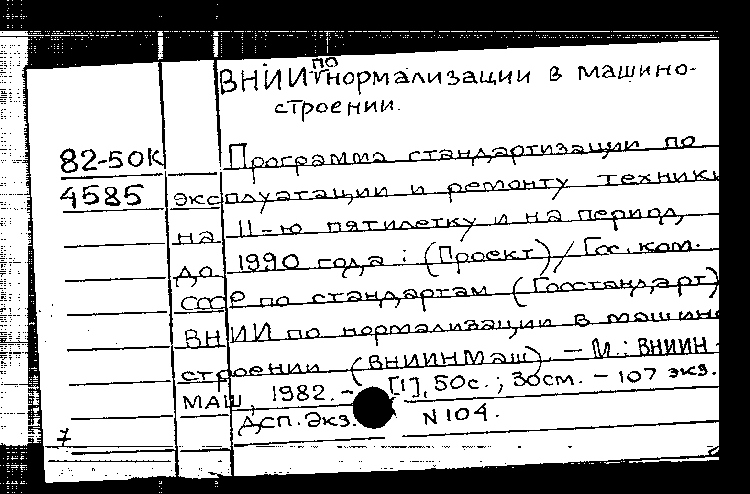 ВНИИ по нормализации в машино-
строении.
82-50К Программа стандартизации по
4585 эксплуатации и ремонту техники
на 11-ю пятилетку и на период
до 1990 года : (Проект) / Гос. ком.
СССР по стандартам (Госстандарт),
ВНИИ по нормализации в машино
строении (ВНИИНМаш). – М.: ВНИИН-
МАШ, 1982. – [1], 50с.; 30см. – 107 экз.
Дсп. Экз. N 104.
7